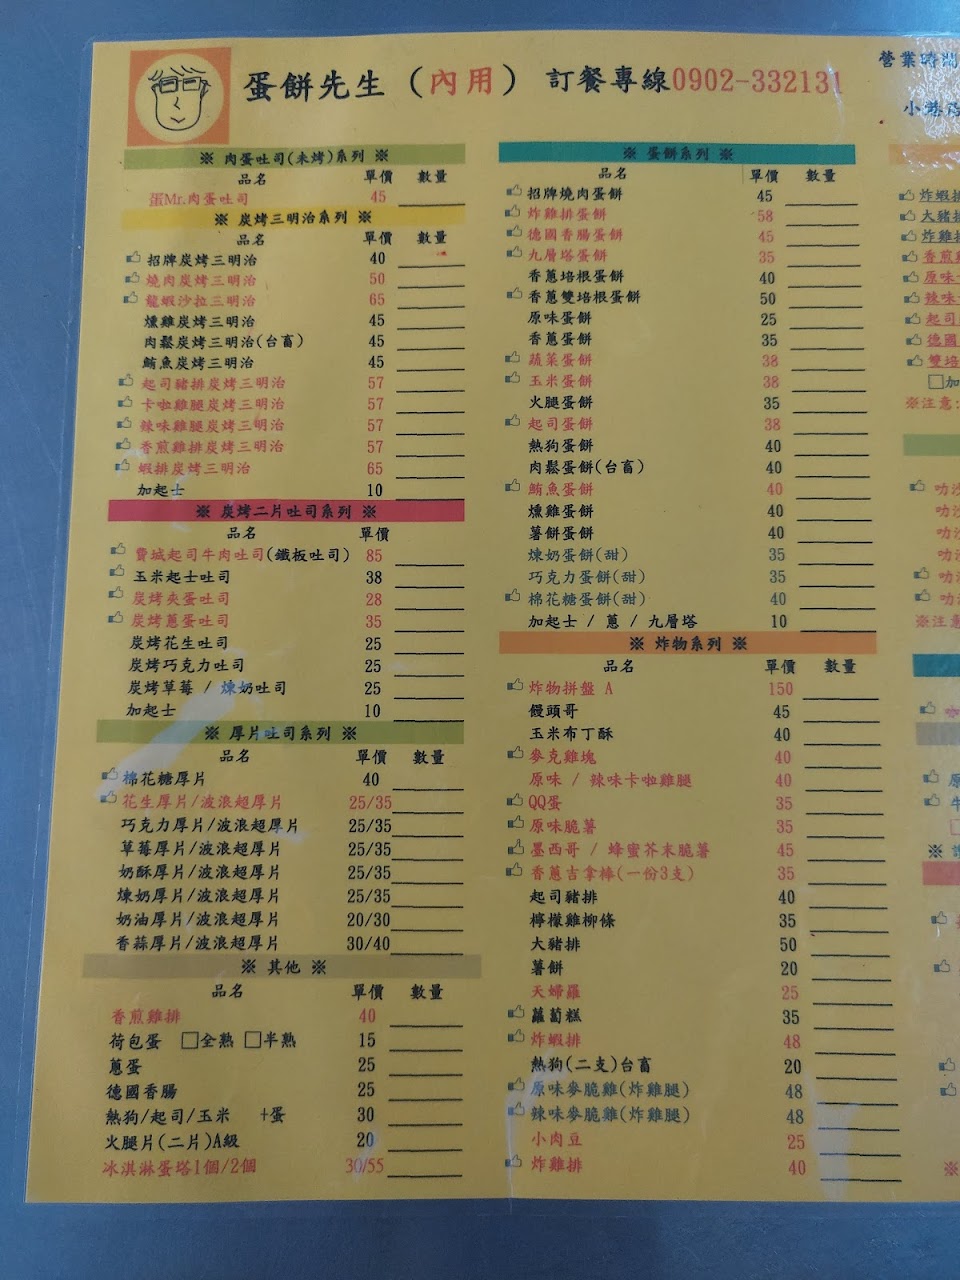 蛋餅先生（內用） 訂餐專線0902-332131
營業時間
小港
※ 肉蛋吐司(未烤)系列 ※
品名 單價 數量
蛋Mr.肉蛋吐司 45
※ 炭烤三明治系列 ※
品名 單價 數量
招牌炭烤三明治 40
燒肉炭烤三明治 50
龍蝦沙拉三明治 65
燻雞炭烤三明治 45
肉鬆炭烤三明治(台畜) 45
鮪魚炭烤三明治 45
起司豬排炭烤三明治 57
卡啦雞腿炭烤三明治 57
辣味雞腿炭烤三明治 57
香煎雞排炭烤三明治 57
蝦排炭烤三明治 65
加起士 10
※ 炭烤二片吐司系列 ※
品名 單價
費城起司牛肉吐司(鐵板吐司) 85
玉米起士吐司 38
炭烤夾蛋吐司 28
炭烤蔥蛋吐司 35
炭烤花生吐司 25
炭烤巧克力吐司 25
炭烤草莓 / 煉奶吐司 25
加起士 10
※ 厚片吐司系列 ※
品名 單價 數量
棉花糖厚片 40
花生厚片/波浪超厚片 25/35
巧克力厚片/波浪超厚片 25/35
草莓厚片/波浪超厚片 25/35
奶酥厚片/波浪超厚片 25/35
煉奶厚片/波浪超厚片 25/35
奶油厚片/波浪超厚片 20/30
香蒜厚片/波浪超厚片 30/40
※ 其他 ※
品名 單價 數量
香煎雞排 40
荷包蛋 □全熟 □半熟 15
蔥蛋 25
德國香腸 25
熱狗/起司/玉米 +蛋 30
火腿片(二片)A級 20
冰淇淋蛋塔1個/2個 30/55
※ 蛋餅系列 ※
品名 單價 數量
招牌燒肉蛋餅 45
炸雞排蛋餅 58
德國香腸蛋餅 45
九層塔蛋餅 35
香蔥培根蛋餅 40
香蔥雙培根蛋餅 50
原味蛋餅 25
香蔥蛋餅 35
蔬菜蛋餅 38
玉米蛋餅 38
火腿蛋餅 35
起司蛋餅 38
熱狗蛋餅 40
肉鬆蛋餅(台畜) 40
鮪魚蛋餅 40
燻雞蛋餅 40
薯餅蛋餅 40
煉奶蛋餅(甜) 35
巧克力蛋餅(甜) 35
棉花糖蛋餅(甜) 40
加起士 / 蔥 / 九層塔 10
※ 炸物系列 ※
品名 單價 數量
炸物拼盤 A 150
饅頭哥 45
玉米布丁酥 40
麥克雞塊 40
原味 / 辣味卡啦雞腿 40
QQ蛋 35
原味脆薯 35
墨西哥 / 蜂蜜芥末脆薯 45
香蔥吉拿棒(一份3支) 35
起司豬排 40
檸檬雞柳條 35
大豬排 50
薯餅 20
天婦羅 25
蘿蔔糕 35
炸蝦排 48
熱狗(二支)台畜 20
原味麥脆雞(炸雞腿) 48
辣味麥脆雞(炸雞腿) 48
小肉豆 25
炸雞排 40
炸蝦排
大豬排
炸雞排
香煎
原味
辣味
起司
德國
雙培
□加
※注意:
叻沙
叻沙
叻沙
叻
叻
叻
※注意
原
牛
※
※